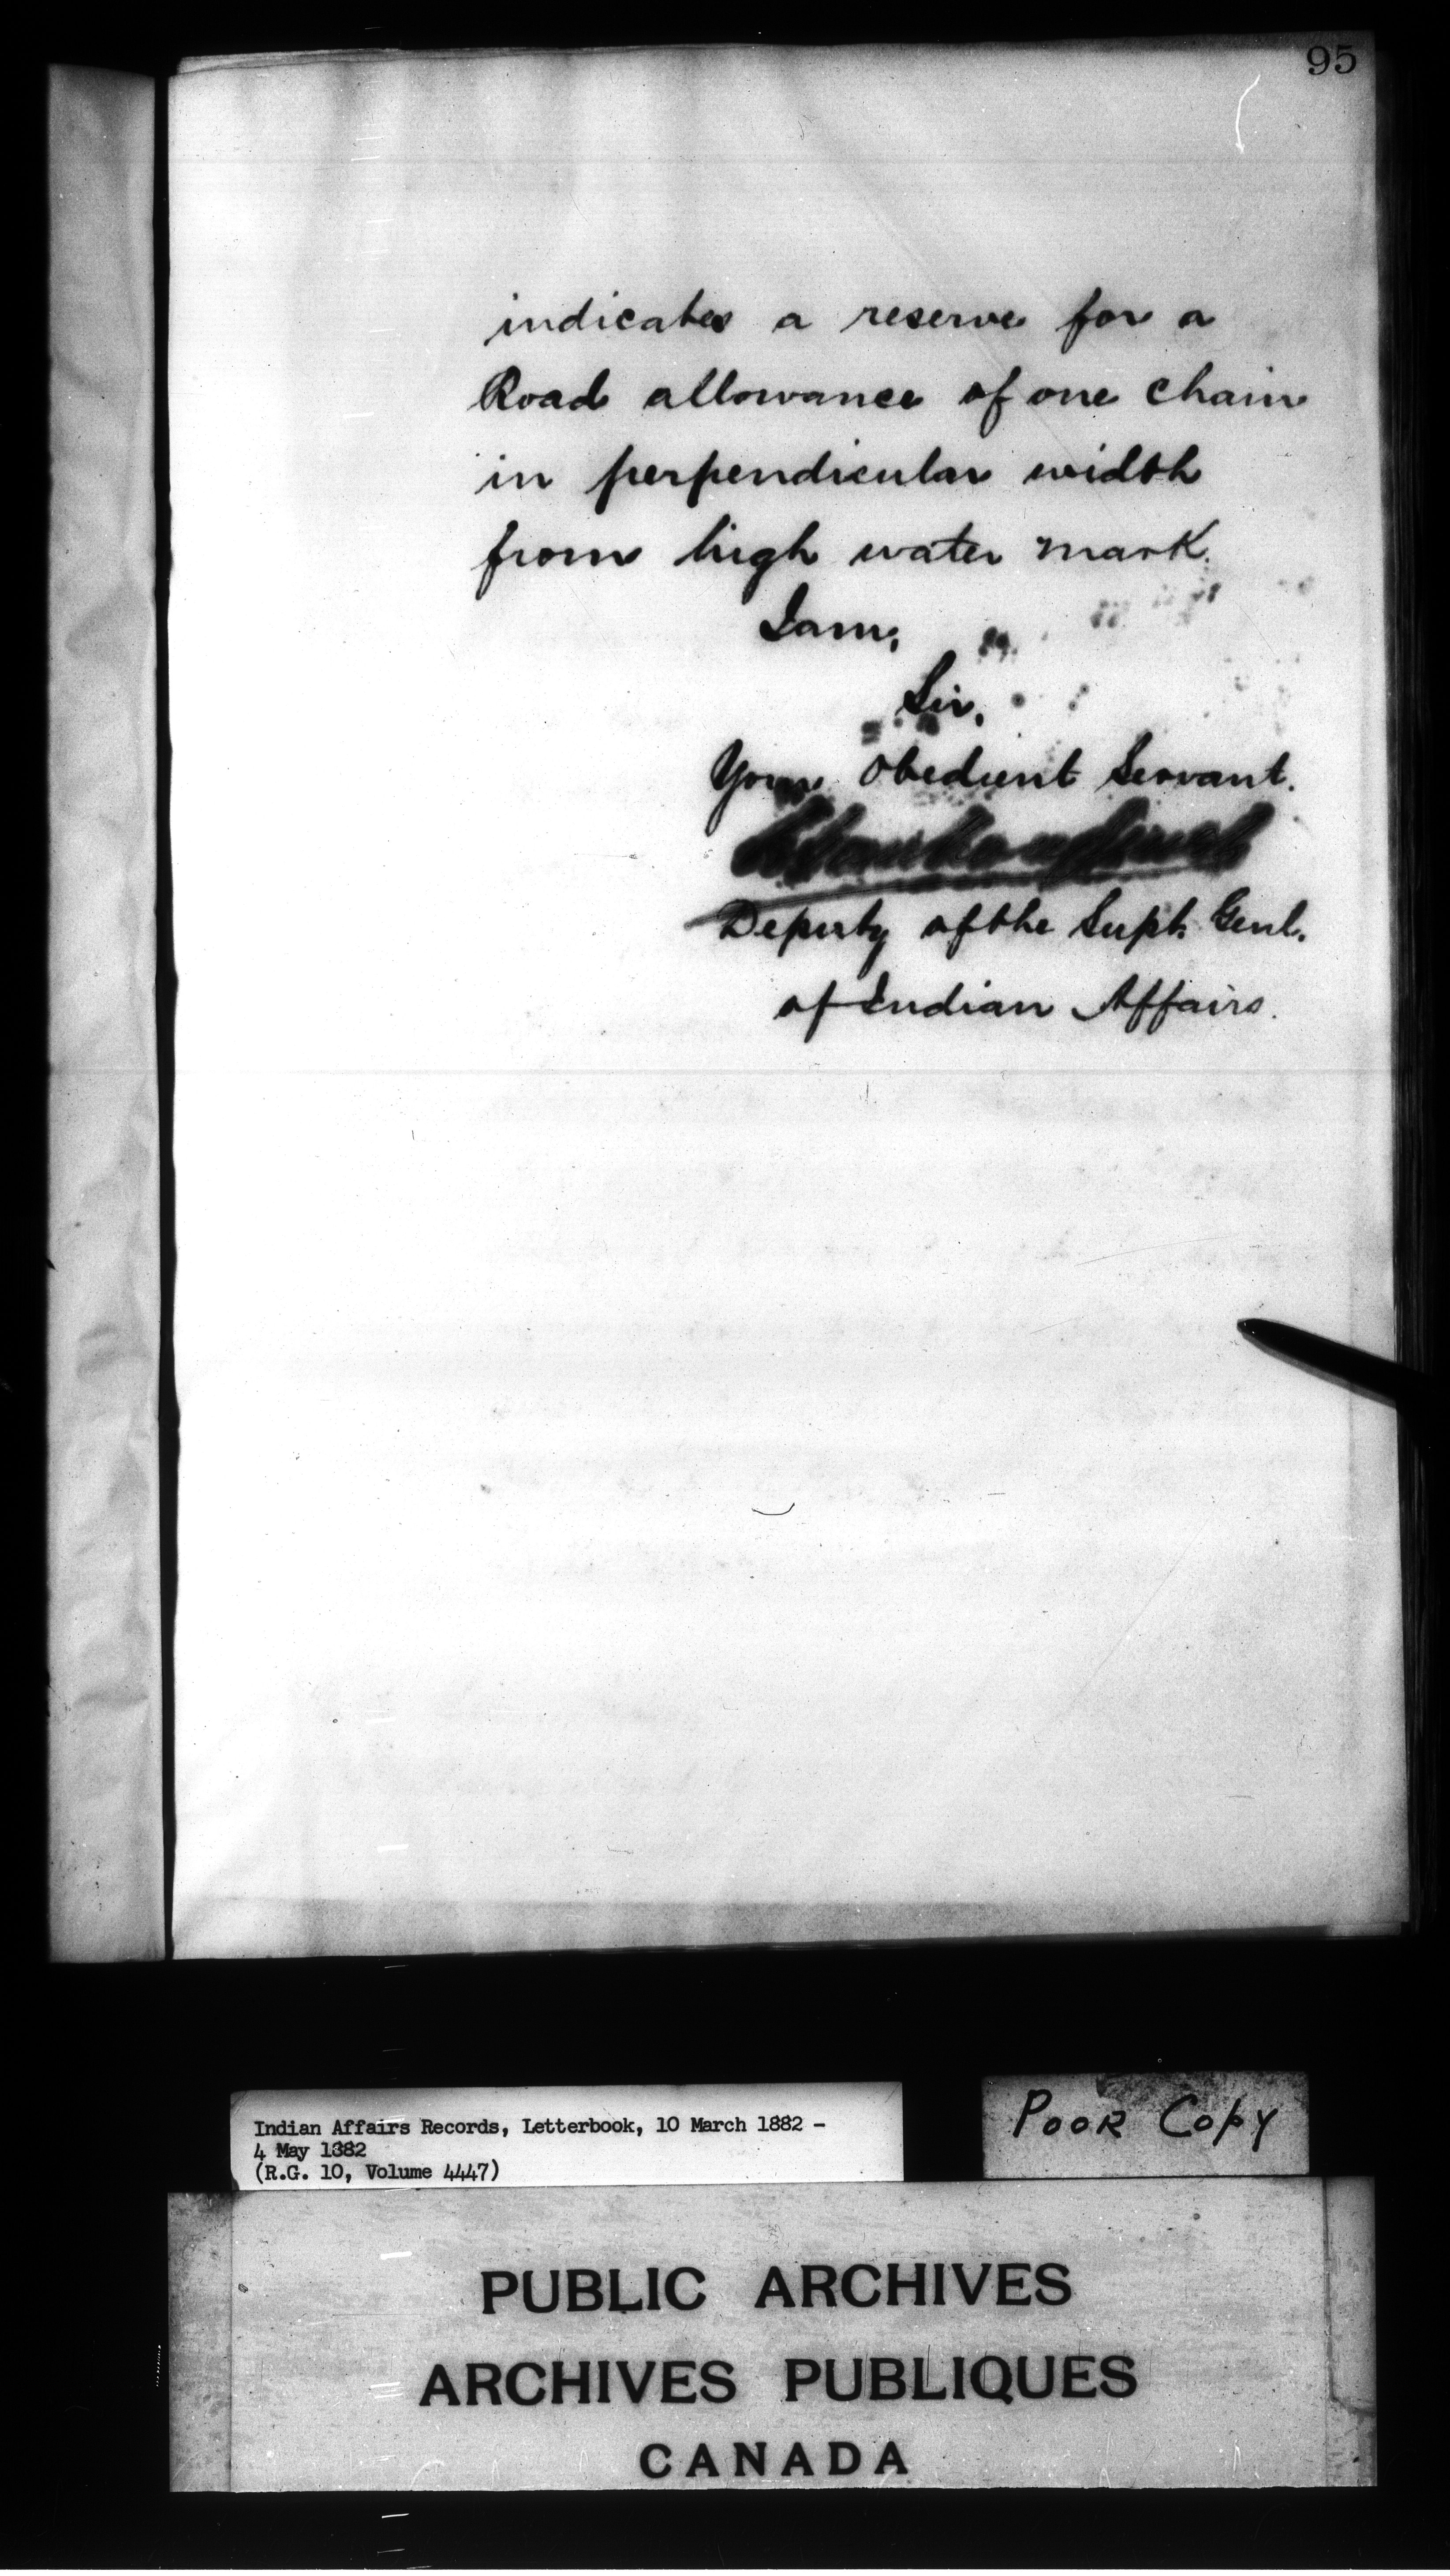 95
indicates a reserve for a
Road allowance of one chain
in perpendicular width
from high water mark.
I am,
Sir,
Your Obedient Servant.
Deputy of the Supt. Genl.
of Indian Affairs.
Indian Affairs Records, Letterbook, 10 March 1882 -
4 May 1882
(R.G. 10, Volume 4447)
POOR COPY
PUBLIC ARCHIVES
ARCHIVES PUBLIQUES
CANADA